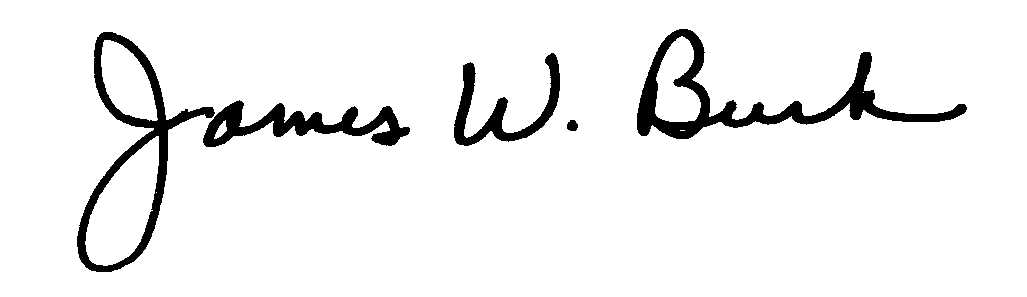 James W. Burk